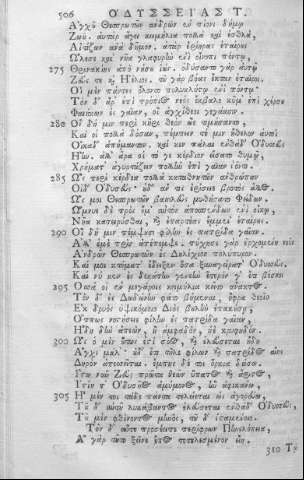 506 ὈΔΥΣΣΕΙΑΣ Τ.
Ἀγχῦ Θεσπρωτῶν ἀνδρῶν ἐν πίονι δήμῳ
Ζωῦ. αὐτὰρ ἄγει κειμήλια πολλὰ καὶ ἐσθλὰ,
Αἰτίζων ἀνὰ δῆμον. ἀτὰρ ἐρίηρας ἑταίρους
Ὤλεσε καὶ νῆα γλαφυρὴν ἐνὶ οἴνοπι πόντῳ,
275 Θρινακίης ἄπο νήσου ἰών. ὀδύσαντο γὰρ αὐτῷ
Ζεύς τε καὶ Ἠέλιος. τοῦ γὰρ βόας ἔκταν ἑταῖροι.
Οἱ μὲν πάντες ὄλοντο πολυκλύστῳ ἐνὶ πόντῳ·
Τὸν δ' ἄρ' ἐπὶ τρόπιος νεὸς ἔκβαλε κῦμ' ἐπὶ χέρσου
Φαιήκων ἐς γαῖαν, οἳ ἀγχίθεοι γεγάασιν.
280 Οἳ δή μιν περὶ κῆρι θεὸν ὣς τιμήσαντο,
Καί οἱ πολλὰ δόσαν, πέμπειν τέ μιν ἤθελον αὐτοὶ
Οἴκαδ' ἀπήμαντον. καί κεν πάλαι ἐνθάδ' Ὀδυσσεὺς
Ἤην. ἀλλ' ἄρα οἱ τό γε κέρδιον εἴσατο θυμῷ,
Χρήματ' ἀγυρτάζειν πολλὴν ἐπὶ γαῖαν ἰόντι.
285 Ὣς περὶ κέρδεα πολλὰ καταθνητῶν ἀνθρώπων
Οἶδ' Ὀδυσεύς· οὐδ' ἄν τις ἐρίσσειε βροτὸς ἄλλος.
Ὥς μοι Θεσπρωτῶν βασιλεὺς μυθήσατο Φείδων.
Ὤμνυε δὲ πρὸς ἔμ' αὐτὸν ἀποσπένδων ἐνὶ οἴκῳ,
Νῆα κατειρύσθαι, καὶ ἐπαρτέας ἔμμεν ἑταίρους
290 Οἳ δή μιν πέμψουσι φίλην ἐς πατρίδα γαῖαν.
Ἀλλ' ἐμὲ πρὶν ἀπέπεμψε. τύχησε γὰρ ἐρχομένη νηῦς
Ἀνδρῶν Θεσπρωτῶν ἐς Δουλίχιον πολύπυρον.
Καί μοι κτήματ' ἔδειξεν ὅσα ξυναγείρατ' Ὀδυσσεύς.
Καί νύ κεν ἐς δεκάτην γενεὴν ἕτερόν γ' ἔτι βόσκοι
295 Ὅσσα οἱ ἐν μεγάροις κειμήλια κεῖτο ἄνακτος.
Τὸν δ' ἐς Δωδώνην φάτο βήμεναι, ὄφρα θεοῖο
Ἐκ δρυὸς ὑψικόμοιο Διὸς βουλὴν ἐπακούσῃ,
Ὅππως νοστήσειε φίλην ἐς πατρίδα γαῖαν,
Ἤδη δὴν ἀπεὼν, ἢ ἀμφαδὸν, ἠὲ κρυφηδόν.
300 Ὣς ὁ μὲν οὕτως ἐστὶ σόος, καὶ ἐλεύσεται ἤδη
Ἄγχι μάλ'· οὐδ' ἔτι τῆλε φίλων καὶ πατρίδος αἴης
Δηρὸν ἀπεσσεῖται. ἔμπης δέ τοι ὅρκια δώσω.
Ἴστω νῦν Ζεὺς πρῶτα θεῶν ὕπατος καὶ ἄριστος,
Ἱστίη τ' Ὀδυσῆος ἀμύμονος, ἣν ἀφικάνω.
305 Ἦ μέν τοι τάδε πάντα τελείεται ὡς ἀγορεύω.
Τοῦ δ' αὐτοῦ λυκάβαντος ἐλεύσεται ἐνθάδ' Ὀδυσσεὺς,
Τοῦ μὲν φθίνοντος μηνὸς, τοῦ δ' ἱσταμένοιο.
Τὸν δ' αὖτε προσέειπε περίφρων Πηνελόπεια,
Αἲ γὰρ τοῦτο ξεῖνε ἔπος τετελεσμένον εἴη.
310 Τῷ